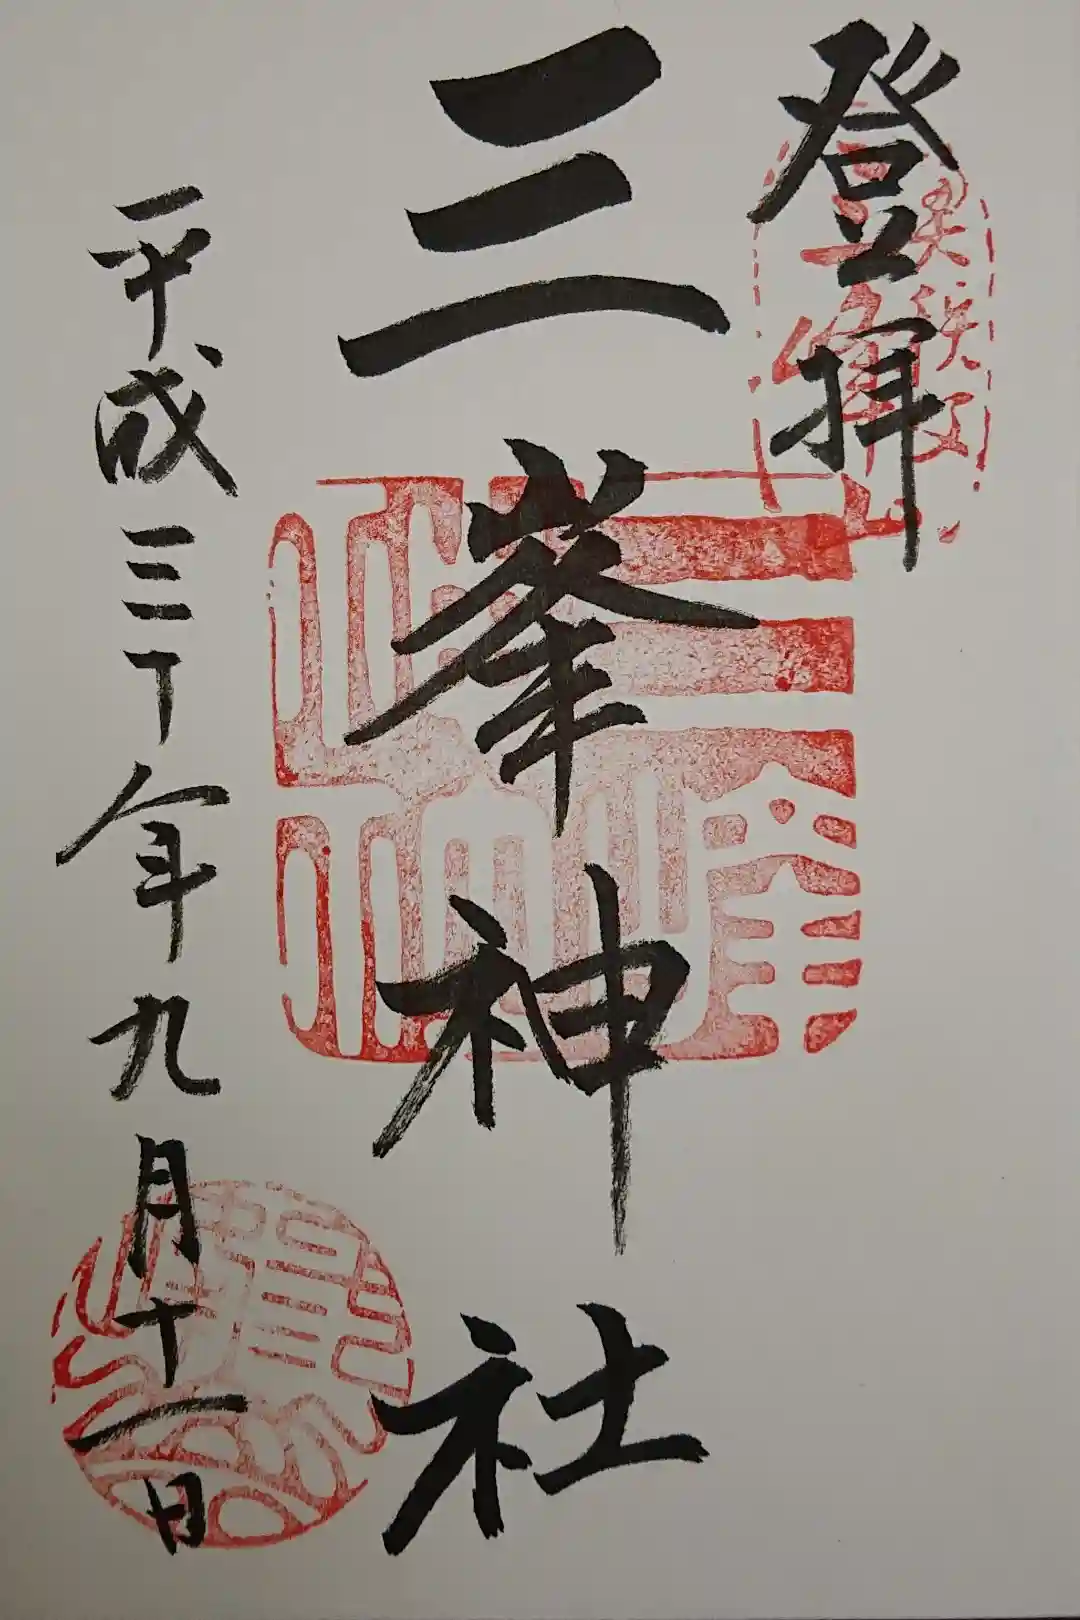 登拝
奥秩父
三峰山
三峯神社
平成三十年九月十一日